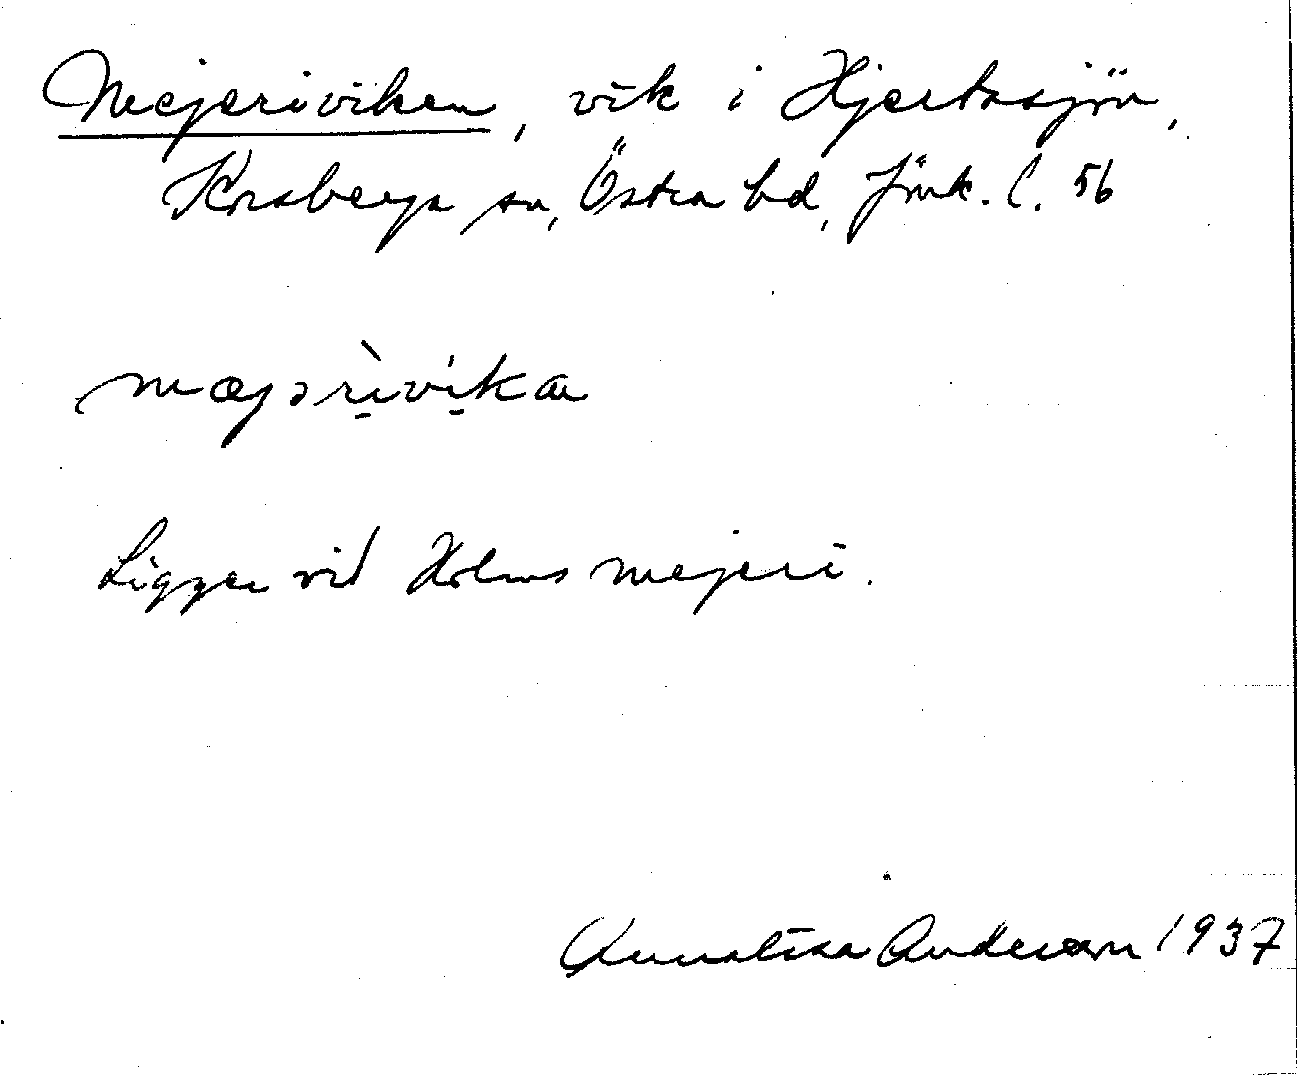 Mejeriviken, vik i Hjertasjön,
Korsberga sn, Östra hd, Jönk. l. 56
mæjərìvíka
Ligger vid Holms mejeri.
Annalisa Anderson 1937